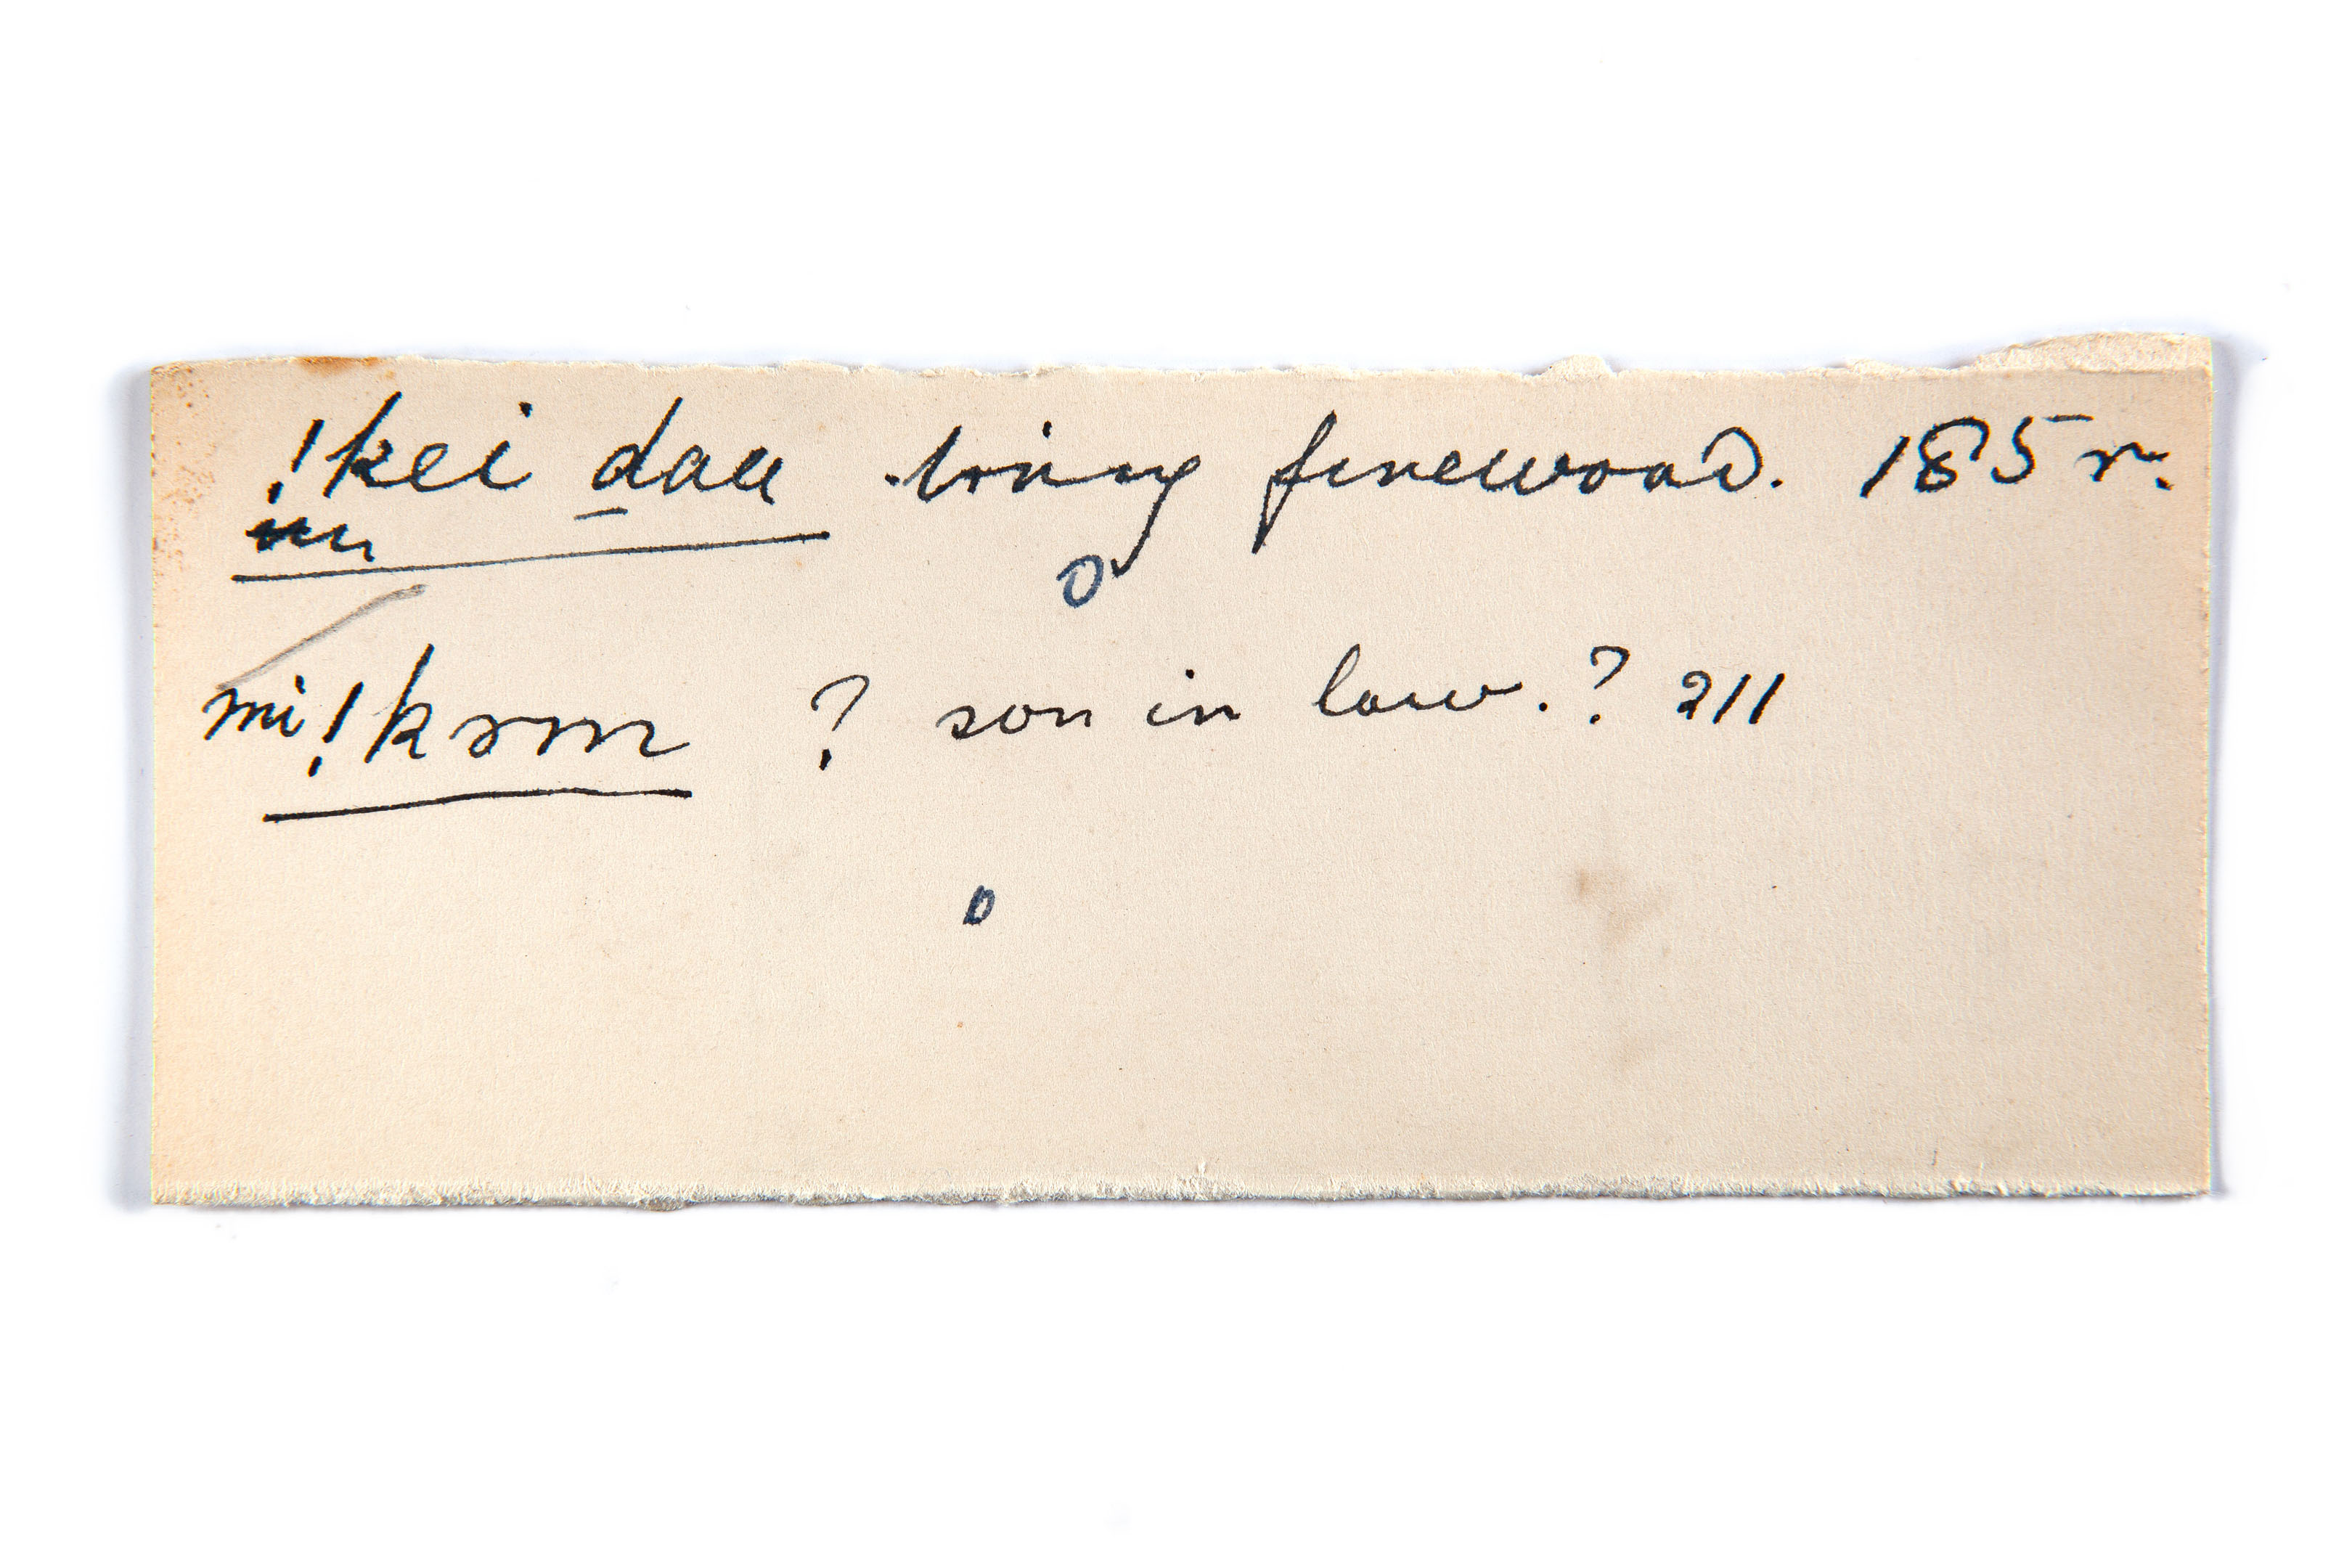 !kei daa bring firewood. 185 r.
o
mi!kəm ? son in law. ? 211
o